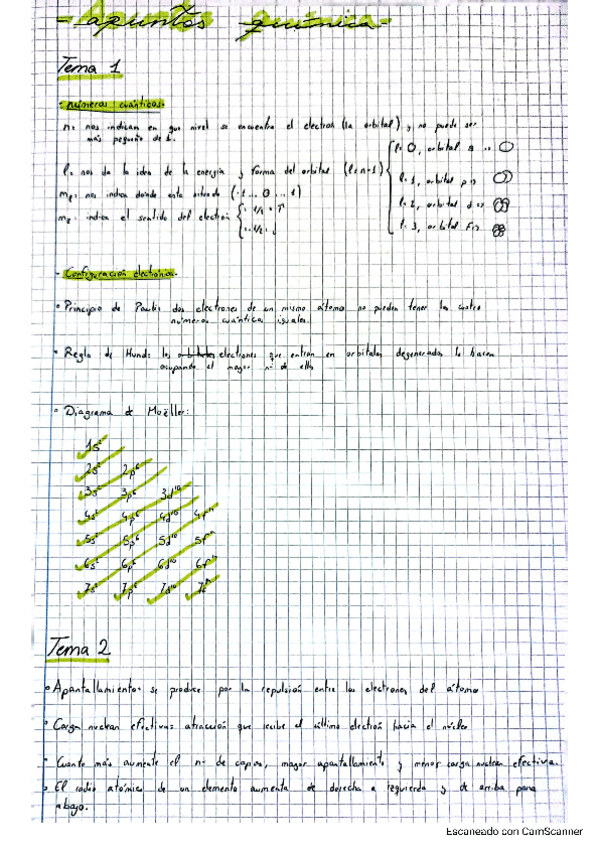 - apuntes química -
Tema 1
- números cuánticos.
n: nos indican en que nivel se encuentra el electron (la orbital), no puede ser
más pequeño de 1.
l: nos da la idea de la energia y forma del orbital (l=n-1)
l: 0, orbital s =>
l: 1, orbital p =>
l: 2, orbital d =>
l: 3, orbital f =>
me: nos indica donde esta situado (-1 ... 0 ... 1)
me: indica el sentido del electron
1/2 ↑
-1/2 ↓
- Configuración electrónica.
• Principio de Pauli: dos electrones de un mismo átomo no pueden tener los cuatro
números cuánticos iguales.
• Regla de Hund: los electrones que entran en orbitales degenerados lo hacen
ocupando el mayor nº de ellos
• Diagrama de Moëller:
1s²
2s² 2p⁶
3s² 3p⁶ 3d¹⁰
4s² 4p⁶ 4d¹⁰ 4f¹⁴
5s² 5p⁶ 5d¹⁰ 5f¹⁴
6s² 6p⁶ 6d¹⁰ 6f¹⁴
7s² 7p⁶ 7d¹⁰ 7f¹⁴
Tema 2
• Apantallamiento: se produce por la repulsión entre los electrones del átomo
• Carga nuclear efectiva: atracción que recibe el último electrón hacia el núcleo
• Cuanto más aumente el nº de capas, mayor apantallamiento y menor carga nuclear efectiva.
• El radio atómico de un elemento aumenta de derecha a izquierda y de arriba para
abajo.
Escaneado con CamScanner